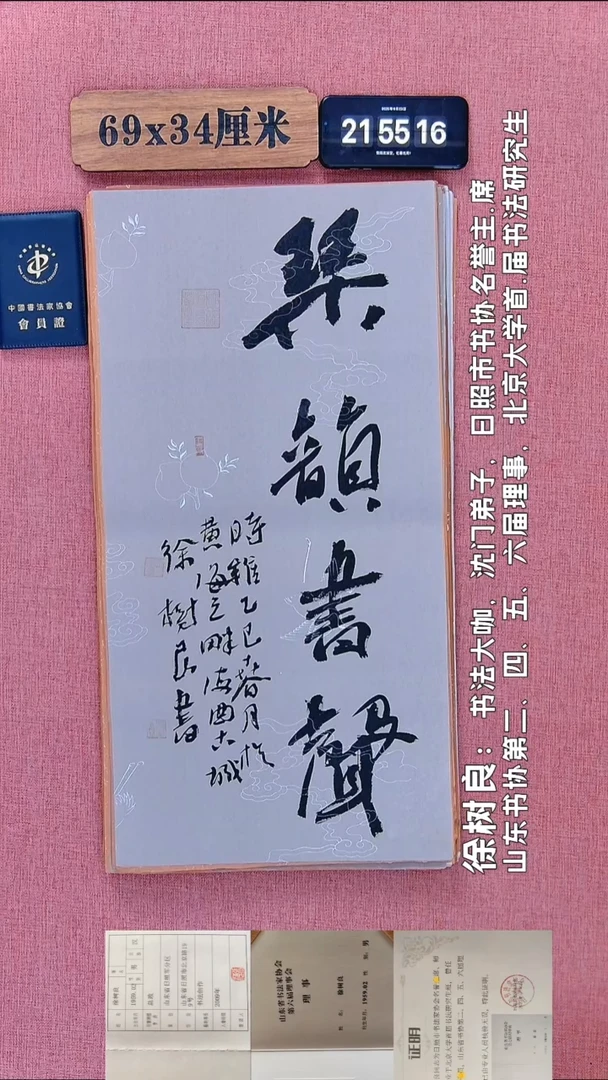 69x34厘米
21 55 16
中國書法家協會
會員證
琴韻書聲
時維乙巳春月於
黄海之畔海曲古城
徐樹良書
徐树良：书法大咖，沈门弟子，日照市书协名誉主.席
山东书协第二、四、五、六届理事，北京大学首.届书法研究生
山东省书法家协会
第六届理事会
理事
徐树良
男
证明